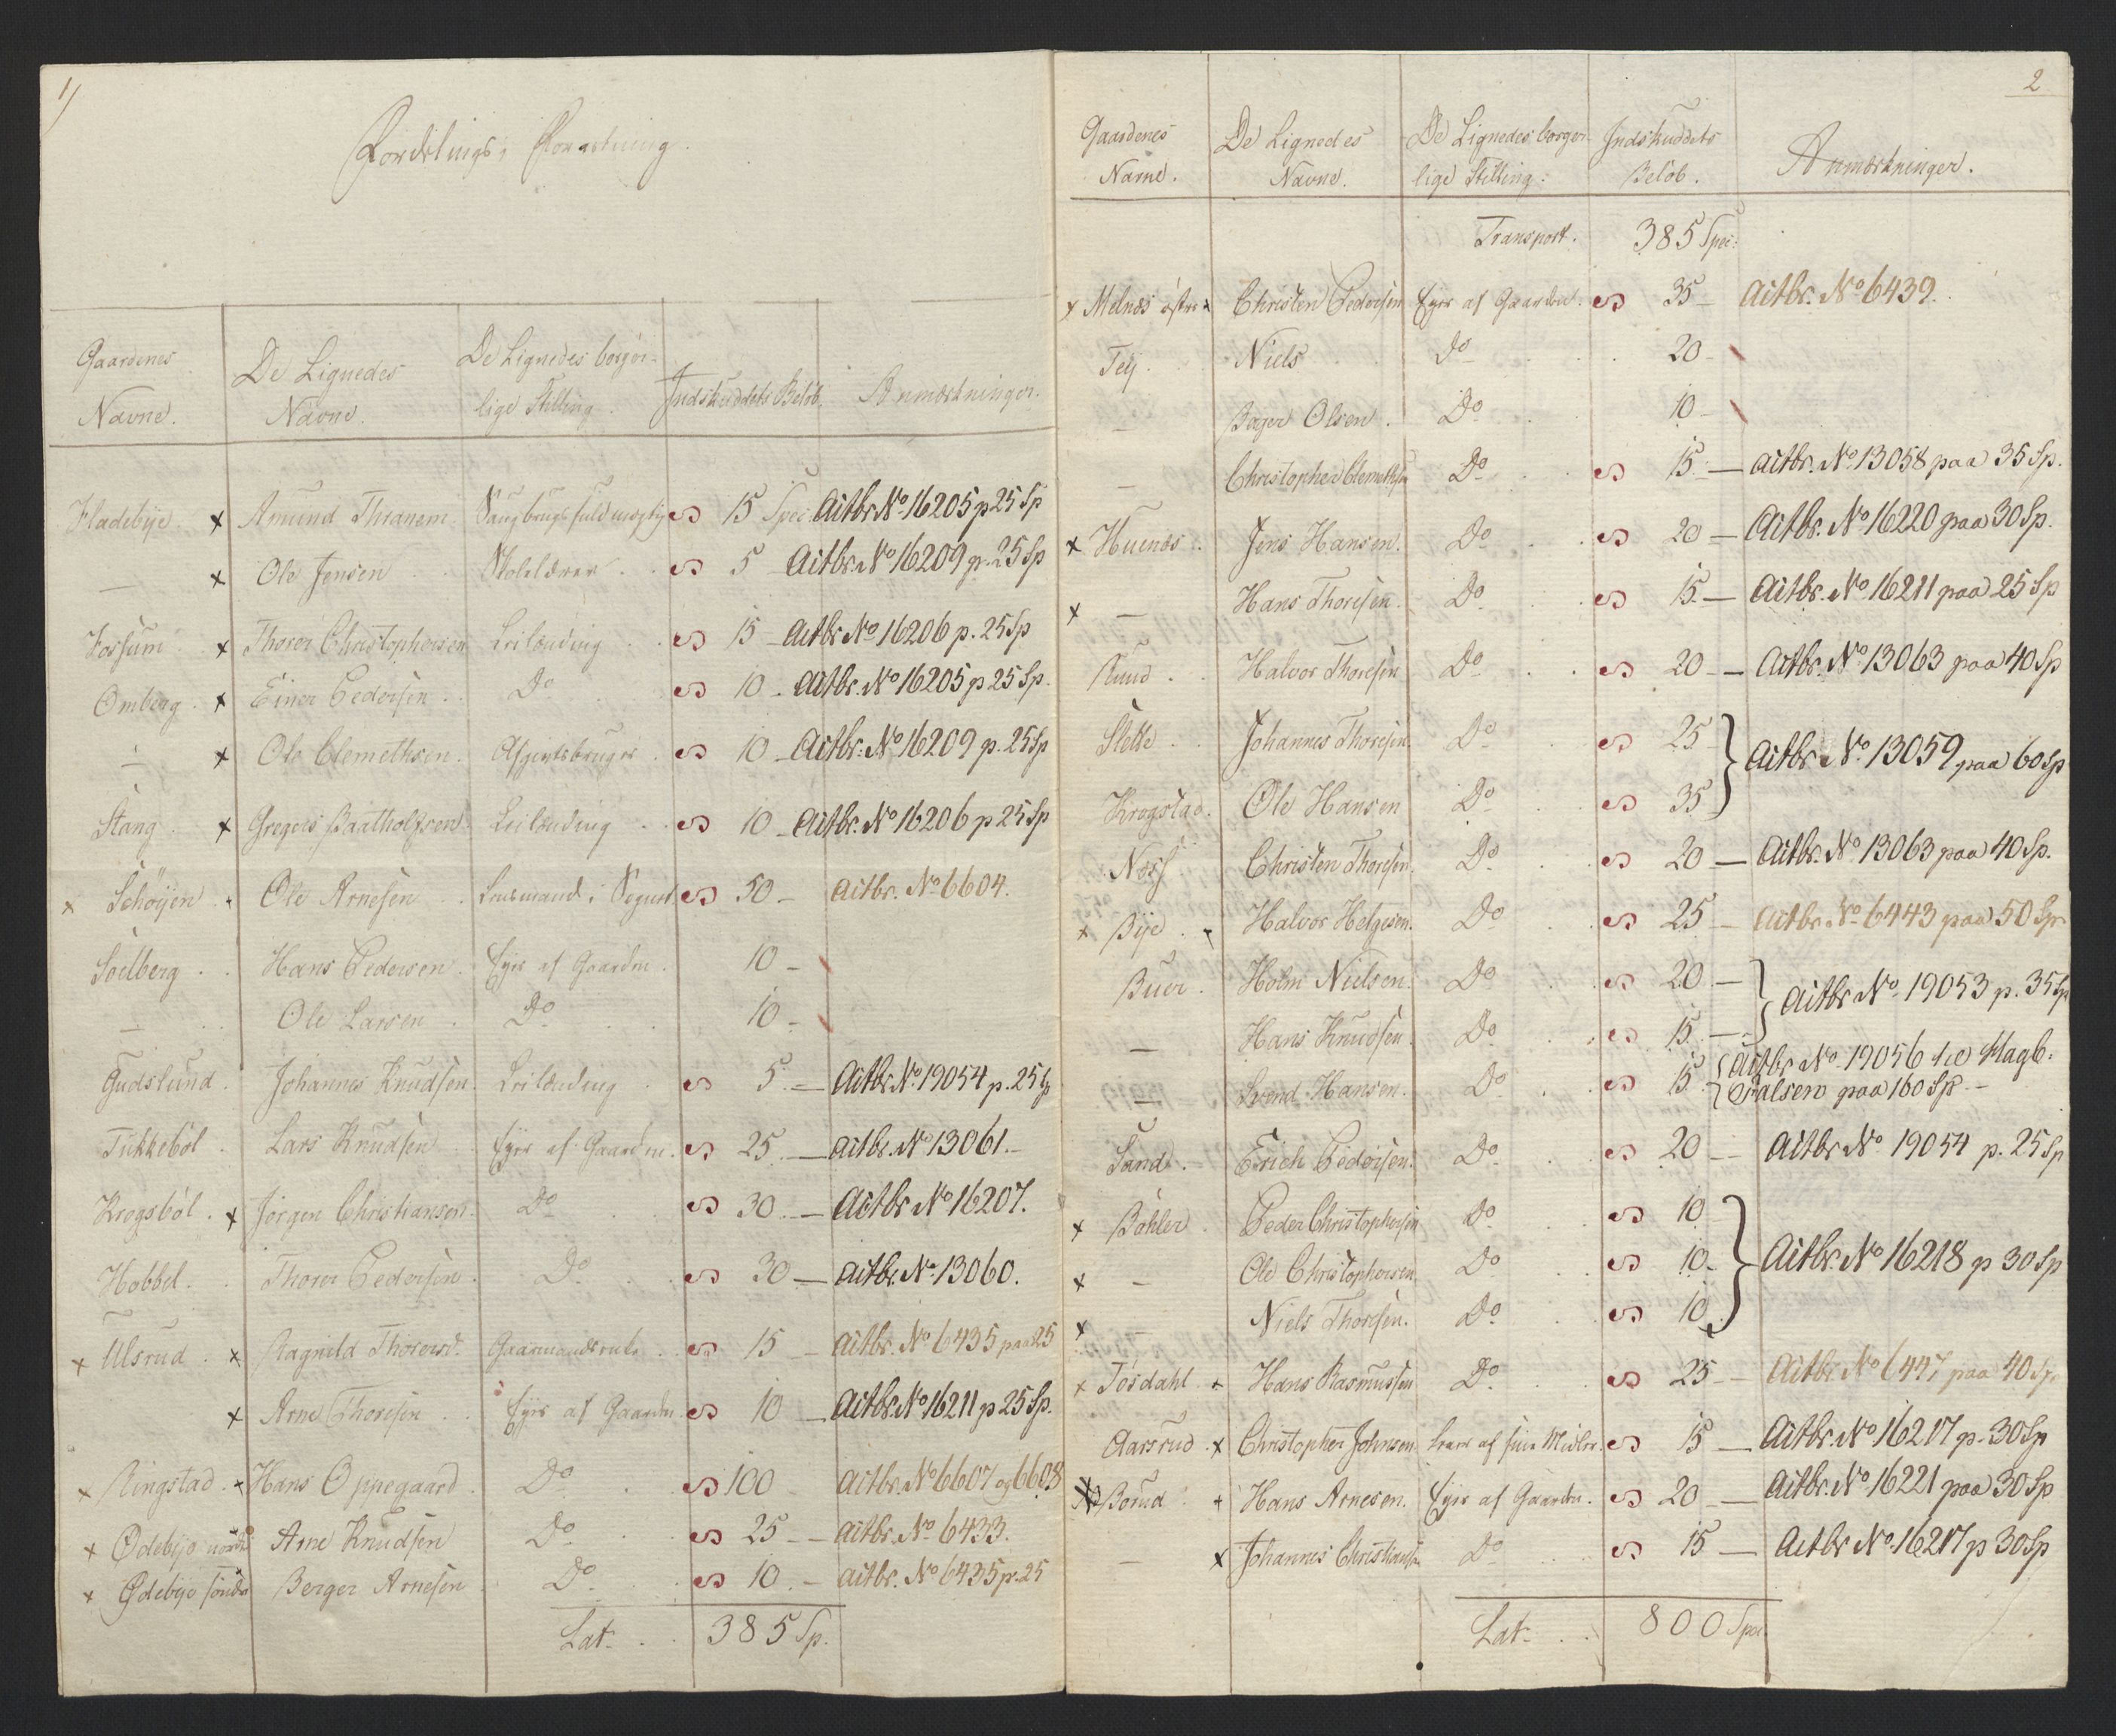 1)
Fordelings, Forretning.
Gaardenes Navne. | De Lignedes Navne. | De Lignedes borger-lige Stilling. | Indskuddets Beløb. | Anmærkninger.
Fladebye. x | Amund Thranem | Saugbrugsfuldmægtig | 15 Spec. | Actbr. No 16205 p 25 Sp
— x | Ole Jensen | Skolelærer | 5 | Actbr. No 16209 p. 25 Sp
Fossum x | Thorer Christophersen | Leilænding | 15 – | Actbr. No 16206 p. 25 Sp
Omberg. x | Einer Pedersen | Do | 10 – | Actbr. No 16205 p 25 Sp.
— x | Ole Clemethsen. | Afgivtsbruger | 10 – | Actbr. No 16209 p. 25 Sp
Stang x | Gregers Baartholfsen | Leilænding | 10 – | Actbr. No 16206 p 25 Sp
x Schøyen x | Ole Arnesen | Lensmand i Sognet | 50 – | Actbr. No 6604.
Soelberg | Hans Pedersen. | Eyer af Gaarden. | 10 –
— | Ole Larsen | Do | 10 –
Gudslund. | Johannes Knudsen | Leilænding | 5. – | Actbr. No 19054 p. 25 Sp
Tikkebøl | Lars Knudsen | Eyer af Gaarden. | 25 – | Actbr. No 13061. –
Krogsbøl. x | Jørgen Christiansen | Do | 30 – | Actbr No 16207.
Hobbel. | Thorer Pedersen | Do | 30 – | Actbr. No 13060.
x Ulsrud. x | Ragnild Thorersd. | Gaarmandsenke | 15 – | Actbr. No 6435 paa 25
x | Arne Thoresen | Eyer af Gaarden | 10 – | Actbr. No 16211 p 25 Sp.
x Ringstad. x | Hans Oppegaard | Do | 100 | Actbr. No 6607 og 6608
x Ødebye nordre | Arne Knudsen | Do | 25 – | Actbr. No 6433.
x Ødebye søndre | Berger Arnesen | Do | 10. – | Actbr. No 6435 p. 25
Lat. | 385 Sp.
2
Gaardenes Navne. | De Lignedes Navne. | De Lignedes borger-lige Stilling. | Indskuddets Beløb. | Anmærkninger.
Transport. | 385 Spec.
x Melnæs østre x | Christen Pedersen | Eyer af Gaarden. | 35 – | Actbr. No 6439.
Tey. | Niels | Do | 20 –
— | Børger Olsen. | Do | 10 –
— | Christopher Clemethsen | Do | 15 – | Actbr. No 13058 paa 35 Sp.
x Huenæs. | Jens Hansen. | Do | 20 – | Actbr. No 16220 paa 30 Sp.
x — | Hans Thoresen. | Do | 15 – | Actbr. No 16211 paa 25 Sp
Ruud. | Halvor Thoresen | Do | 20 – | Actbr. No 13063 paa 40 Sp
Slette. | Johannes Thoresen | Do | 25 | Actbr. No 13059 paa 60 Sp
Krogstad. | Ole Hansen | Do | 35
Næss | Christen Thoresen. | Do | 20 – | Actbr. No 13063 paa 40 Sp.
x Bye. x | Halvor Helgesen. | Do | 25 – | Actbr. No 6443 paa 50 Sp.
Buer. | Holm Nielsen. | Do | 20 – | Actbr No 19053 p. 35 Sp
— | Hans Knudsen. | Do | 15 –
— | Svend Hansen. | Do | 15 | Actbr No 19056 til Hagb: Falsen paa 160 Sp –
Sand. | Erich Pedersen. | Do | 20 – | Actbr No 19054 p. 25 Sp
x Bøhler. | Peder Christophersen | Do | 10 | Actbr. No 16218 p 30 Sp
x — | Ole Christophersen | Do | 10 –
x — | Niels Thoresen. | Do | 10
x Tøsdahl. x | Hans Rasmussen | Do | 25 – | Actbr. No 6447 paa 40 Sp.
Aarsrud. x | Christopher Johnsen | Lever af sine Midler. | 15 – | Actbr. No 16217 p. 30 Sp
Borud. x | Hans Arnesen. | Eyer af Gaarden. | 20 – | Actbr. No 16221 paa 30 Sp
— x | Johannes Christiansen | Do | 15 – | Actbr No 16217 p 30 Sp
Lat. | 800 Spec.